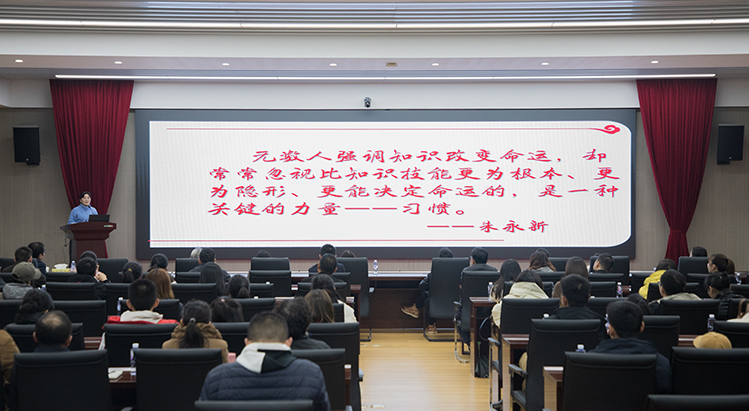 无数人强调知识改变命运，却
常常忽视比知识技能更为根本、更
为隐形、更能决定命运的，是一种
关键的力量——习惯。
——朱永新